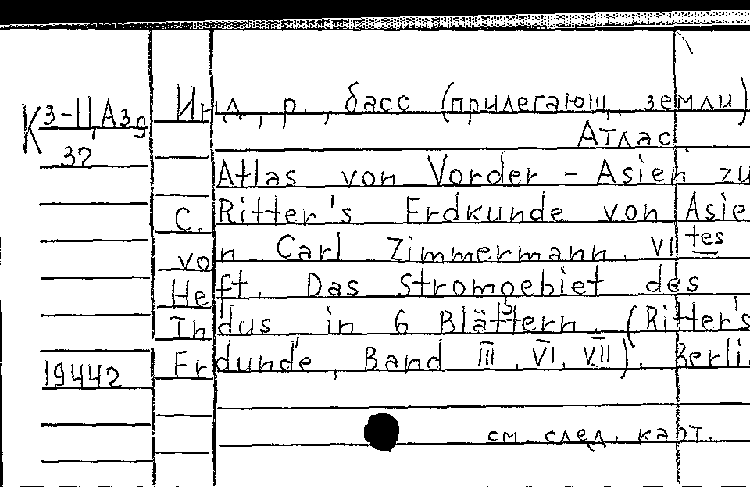 К 3-II, Аз9
32
Инд, р., басс (прилегающ. земли)
Атлас
Atlas von Vorder - Asien zu
C. Ritter's Erdkunde von Asie
von Carl Zimmermann. VI tes
Heft. Das Stromgebiet des
Indus in 6 Blättern. (Ritter's
Erdunde, Band III, VI, VII). Berli
19442
см. след. карт.